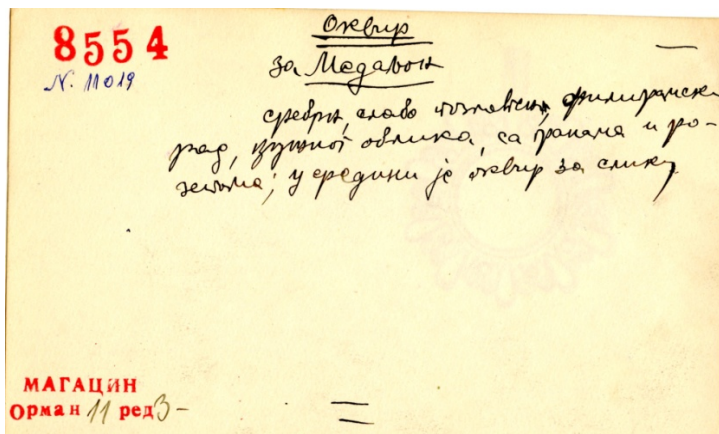 Оквир
8554
за Медаљон
N. 11019
сребрн, слабо позлаћен, филигрански
рад, кружног облика, са гранама и ро-
зетама; у средини је оквир за слику
МАГАЦИН
Орман 11 ред 3-